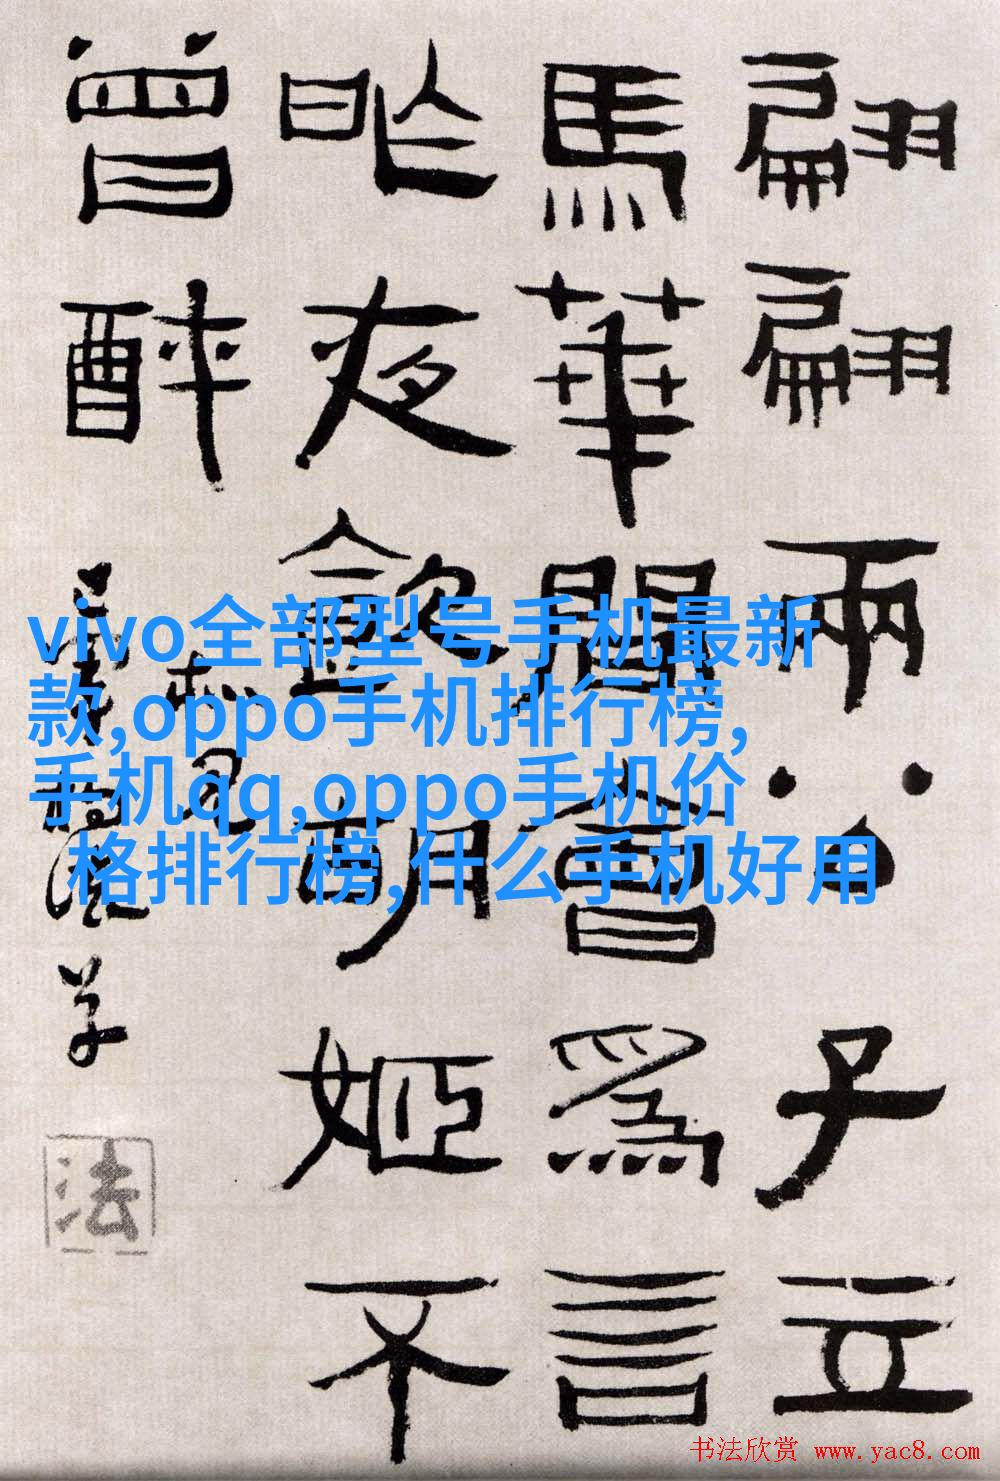 翩翩兩公子立
馬華會爲言
昨夜飲胡姬不
曾醉
法
vivo全部型号手机最新
款,oppo手机排行榜,
手机qq,oppo手机价
格排行榜,什么手机好用
书法欣赏 www.yac8.com